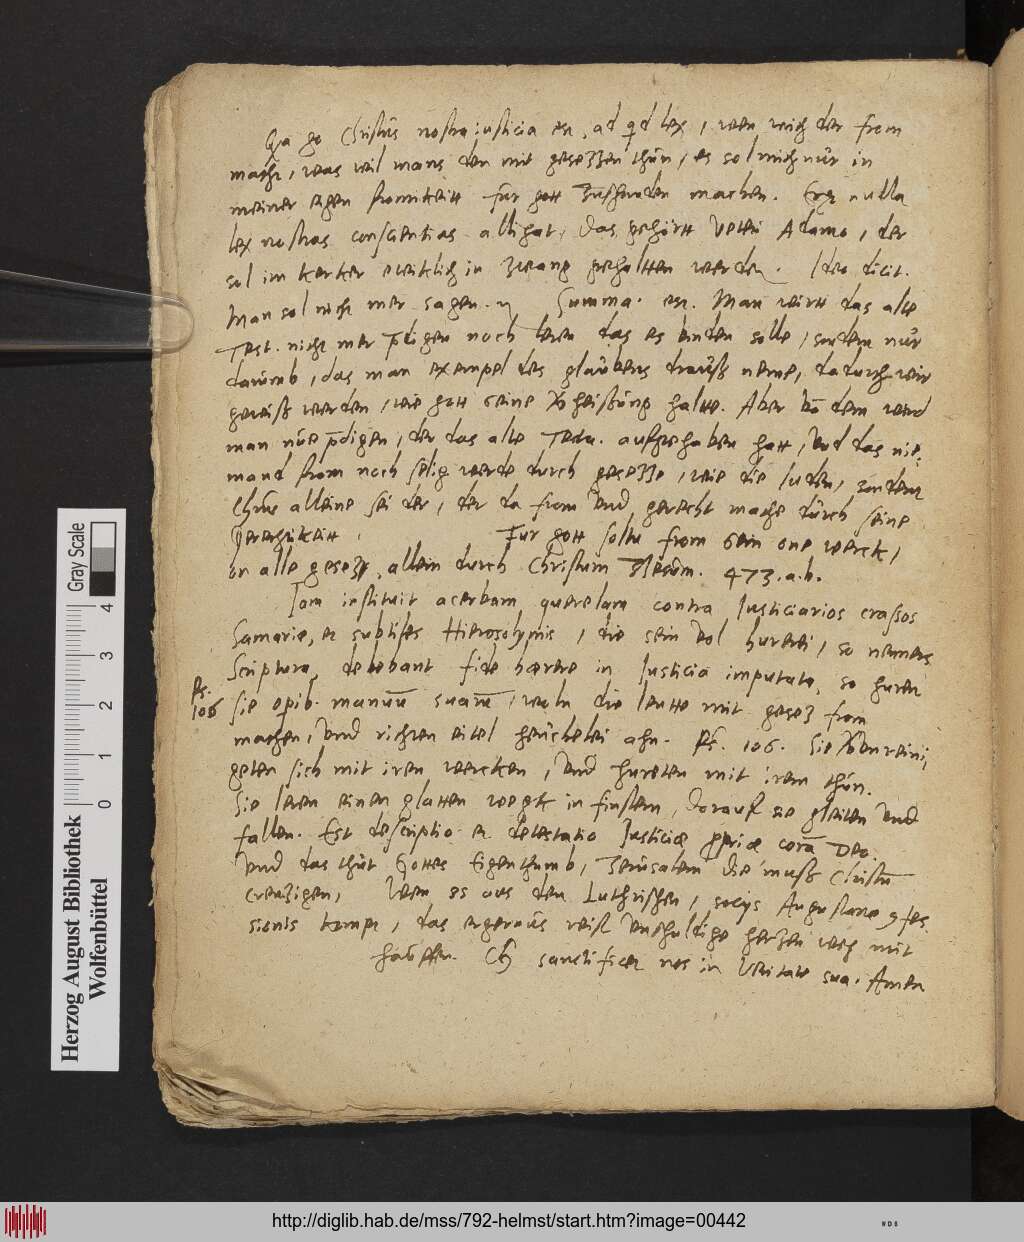 Christus nostra iusticia est, ad quid lex, wen mich der from
macht, was wil mans den mit gesetzzen thun, es sol mich nur in
meiner eigen fromikeitt fur gott machen. Ergo nulla
lex nostras conscientias alligat, das gehortt vetеri Adamo, der
sol im kerker ewiklich in zwang gehaltten werden. Ideo dicit.
Man sol nicht mer sagen. Summa. est. Man wirtt das alte
Test. nicht mer pdigen noch leren das es binden solle, sondern nur
darumb, das man exempel des glaubens drauß neme, dadurch wir
gewiß werden, wie gott seine vorheissung halte. Aber von dem wird
man nue pdigen, der das alte Testa. aufgehaben hatt, vnd das nie,
mand from noch selig werde durch gesezze, wie die Iuden, sondern
Christus alleine sei der, der da from vnd gerecht mache durch seine
Gerechtikeitt. Fur gott soltu from sein one werck,
on alle gesetz, allein durch Christum Iesum. 473.a.b.
Iam instituit acerbam querelam contra Iusticiarios crassos
Samarie, et subtiles Hierosolymis, die sein vol hurerei, so nemens
Scriptura, debebant fide hærere in Iusticia imputata, so huren
Ps.
106
sie opib. manuu suaru, die leutte mit gesez from
machen, vnd richten eitel heuchelei ahn. Ps. 106. Sie vorunreini,
geten sich mit iren wercken, vnd hureten mit irem thun.
Sie leren einen glatten wegk in finstern, Dorauf sie gleiten vnd
fallen. Est descriptio et detestatio Iusticiæ ppriæ cora Deo.
vnd das thut Gottes Eigenthumb, Ierusalem die muß Christu
creutzigen, Wen es aus den Luthrischen, sociis Augustanæ 9fes
sionis kompt, das ergernus reist vnschuldige hertzen weg mit
hauffen. Ch sanctificet nos in veritate sua. Amen
Herzog August Bibliothek
Wolfenbüttel
Gray Scale
0 1 2 3 4
http://diglib.hab.de/mss/792-helmst/start.htm?image=00442